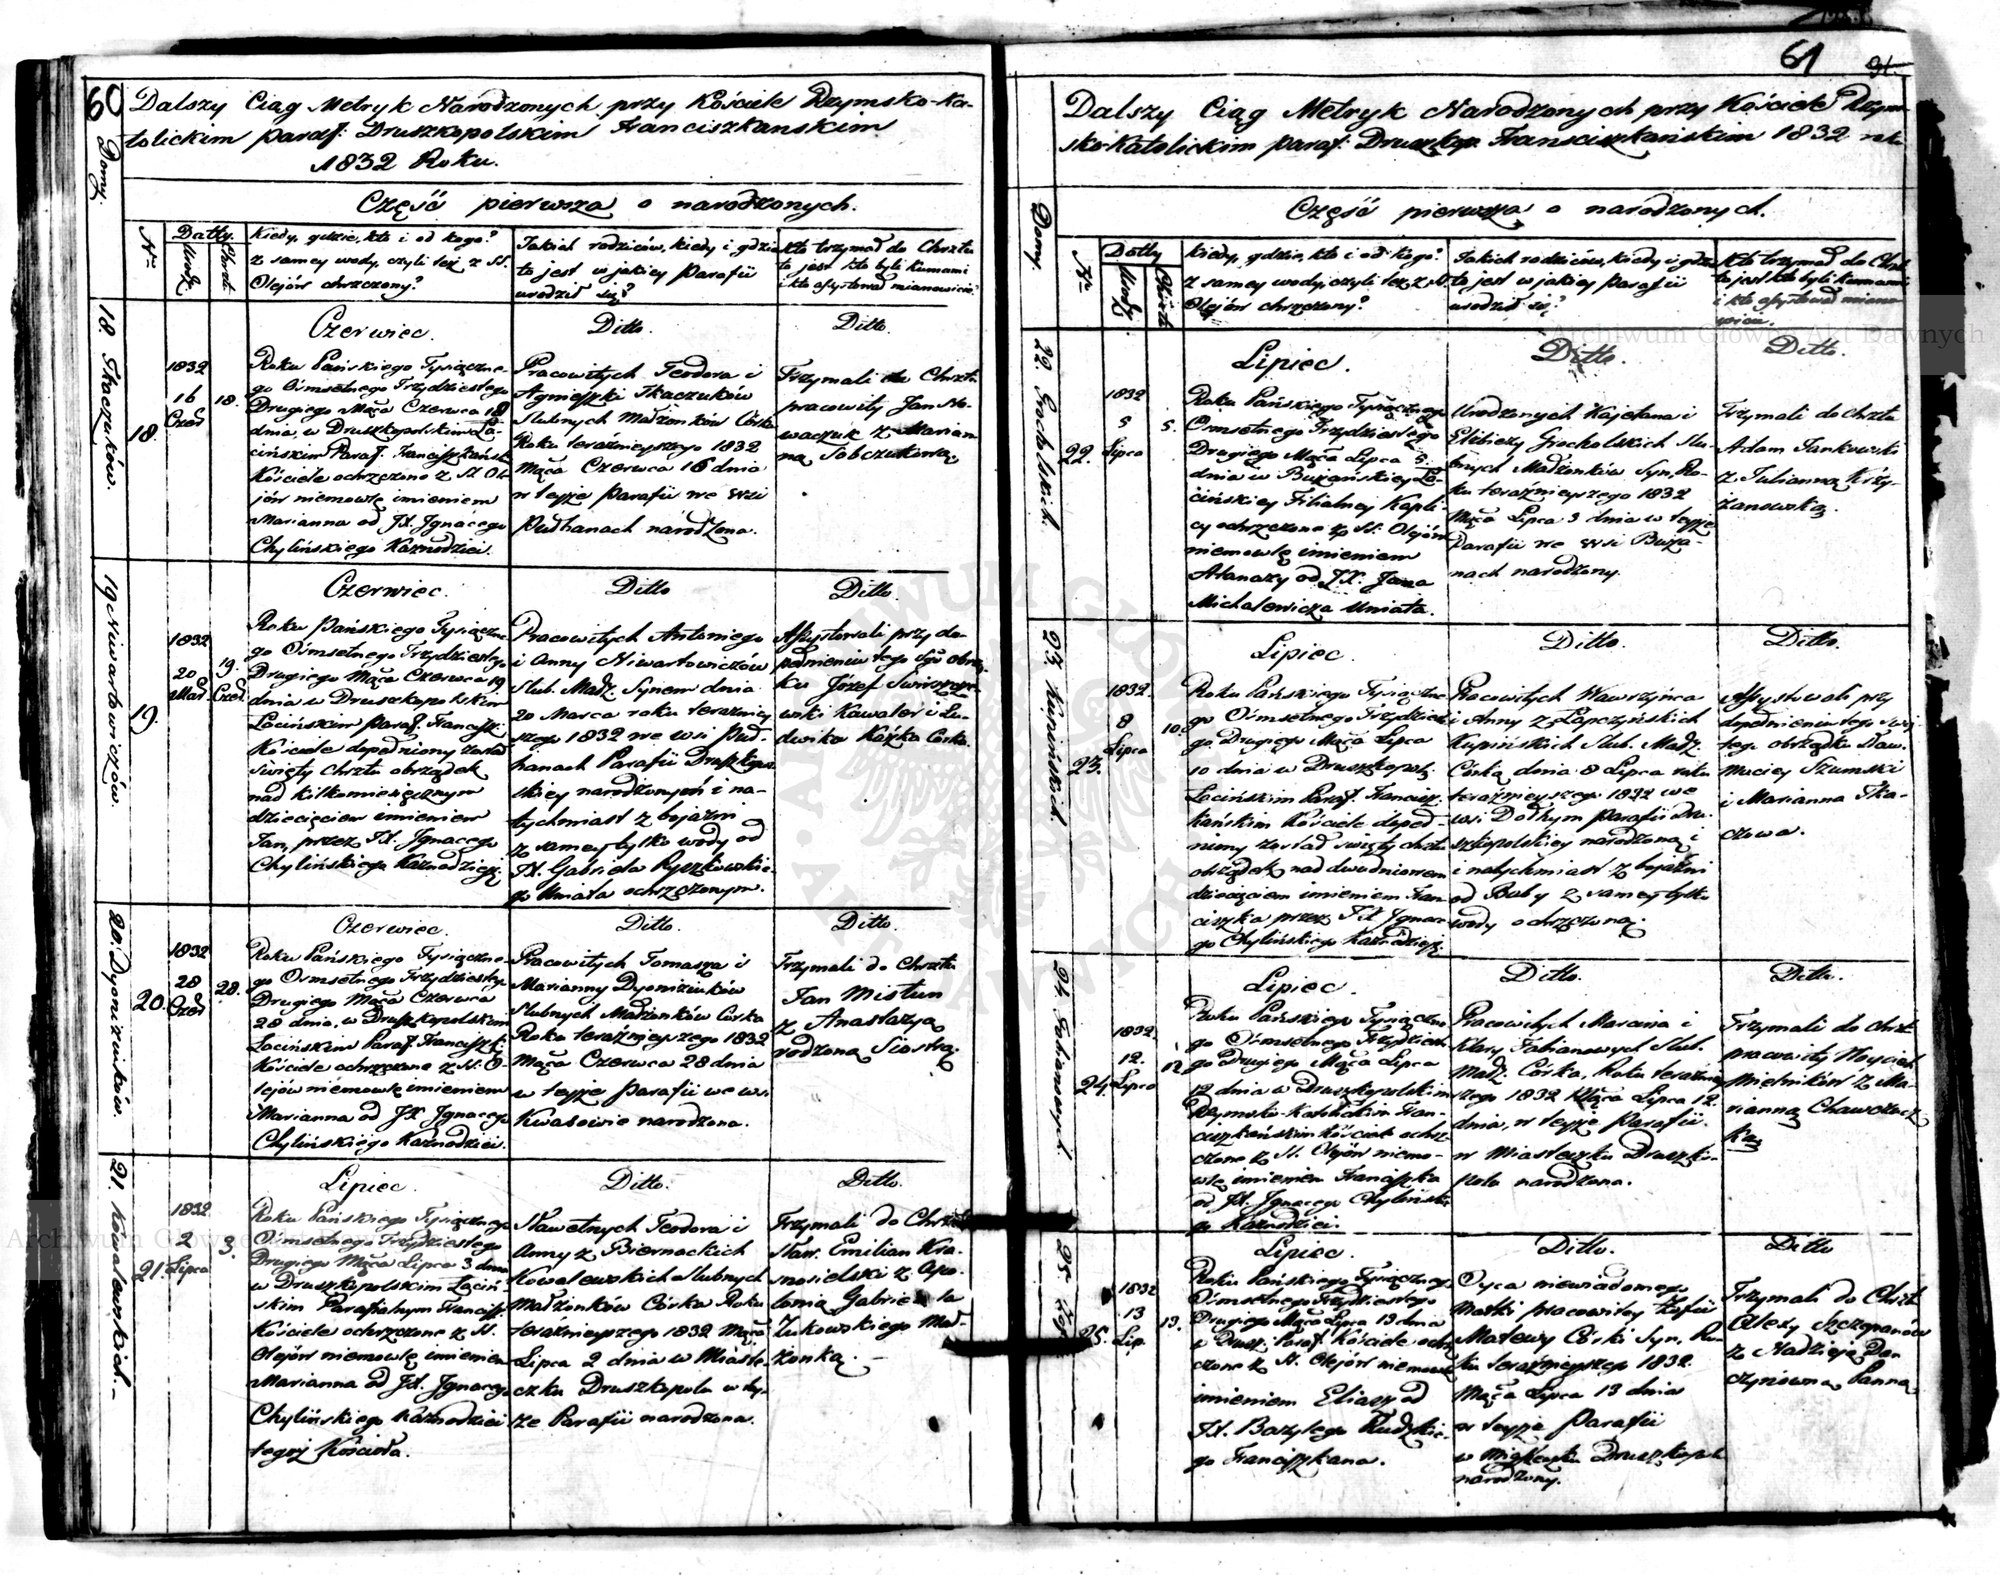 60
Dalszy Ciąg Metryk Narodzonych przy Kościele Rzymsko-Ka-
tolickim paraf: Druszkopolskim Franciszkanskim
1832 Roku.
Część pierwsza o narodzonych.
Domy.
Nro
Datty
Urodz.
Chrztu
Kiedy, gdzie, kto i od kogo?
z samey wody, czyli też z SS.
Olejów chrzczony?
Jakich rodziców, kiedy i gdzie
to jest w jakiey Parafii
urodził się?
Kto trzymał do Chrztu
to jest kto byli Kumami
i kto assystował mianowicie?
18. Tkaczuków.
18.
1832
16
Czer
18.
Czerwiec.
Roku Pańskiego Tysiączne-
go Ośmsetnego Trzydziestego
Drugiego Mąca Czerwca 18
dnia, w Druszkopolskim Ła-
cińskim Paraf. Franciszkańsk
Kościele ochrzczono z SS. Ole-
jów niemowlę imieniem
Marianna od JX. Ignacego
Chylińskiego Kaznodziei.
Ditto.
Pracowitych Teodora i
Agnieszki Tkaczuków
Slubnych Małżonków Córka
Roku teraźnieyszego 1832
Mąca Czerwca 16 dnia
w teyże Parafii we wsi
Pudhanach narodzona.
Ditto.
Trzymali do Chrztu
pracowity Jan No-
waczuk z Marian-
ną Sobczukową.
19 Niwartowiczów.
19.
1832
20
Mar.
19.
Czer.
Czerwiec.
Roku Pańskiego Tysiączne-
go Ośmsetnego Trzydziestego
Drugiego Mąca Czerwca 19
dnia w Druszkopolskim
Łacińskim paraf. Francisz.
Kościele dopełniony został
Swięty chrztu obrządek
nad kilkomiesięcznym
dziecięciem imieniem
Jan, przez JX. Ignacego
Chylińskiego Kaznodzieję.
Ditto
Pracowitych Antoniego
i Anny Niwartowiczów
Slub. Małż. Synem dnia
20 Marca roku teraźniey
szego 1832 we wsi Pud-
hanach Parafii Druszkopol
skiey narodzonym i na-
tychmiast z bojaźni
z samey tylko wody od
JX. Gabriela Ryszkowskie-
go Uniata ochrzczonym.
Ditto.
Assystowali przy do-
pełnieniu tego Sgo obrzą-
dku Józef Swiszcze-
wski Kawaler i Lu-
dwika Kaska Córka.
20. Dyonizuków.
20.
1832
28
Czer
28.
Czerwiec.
Roku Pańskiego Tysiączne-
go Ośmsetnego Trzydziestego
Drugiego Mąca Czerwca
28 dnia, w Druszkopolskim
Łacińskim Paraf. Franciszk:
Kościele ochrzczono z SS. O-
lejów niemowlę imieniem
Marianna od JX Ignacego
Chylińskiego Kaznodziei.
Ditto.
Pracowitych Tomasza i
Marianny Dyonizuków
Slubnych Małżonków Córka
Roku teraźnieyszego 1832
Mąca Czerwca 28 dnia
w teyże Parafii we wsi
Kwasowie narodzona.
Ditto.
Trzymali do Chrztu
Jan Mistun
z Anastazyą
rodzoną Siostrą.
21. Kowalewskich.
21.
1832
2
Lipca
3.
Lipiec.
Roku Pańskiego Tysiącznego
Ośmsetnego Trzydziestego
Drugiego Mąca Lipca 3 dnia
w Druszkopolskim Łaciń-
skim Parafialnym Francisz.
Kościele ochrzczono z SS.
Olejów niemowlę imieniem
Marianna od JX. Ignacego
Chylińskiego Kaznodziei
tegoż Kościoła.
Ditto.
Sławetnych Teodora i
Anny z Biernackich
Kowalewskich Slubnych
Małżonków Córka Roku
teraźnieyszego 1832 Mąca
Lipca 2 dnia w Miaste-
czku Druszkopolu w tey-
że Parafii narodzona.
Ditto.
Trzymali do Chrztu
Sław. Emilian Kra-
snosielski z Apo-
lonią Gabriela
Żukowskiego Mał-
żonką.
61
91.
Dalszy Ciąg Metryk Narodzonych przy Kościele Rzym-
sko-Katolickim paraf. Druszkop. Franciszkańskim 1832 rok
Część pierwsza o narodzonych.
Domy.
Nro
Datty
Urodz.
Chrztu
Kiedy, gdzie, kto i od kogo?
z samey wody, czyli też z SS.
Olejów chrzczony?
Jakich rodziców, kiedy i gdzie
to jest w jakiey Parafii
urodził się?
Kto trzymał do Chrztu
to jest kto byli kumami
i kto assystował miano-
wicie.
22. Grocholskich.
22.
1832
5
Lipca
5.
Lipiec.
Roku Pańskiego Tysiącznego
Ośmsetnego Trzydziestego
Drugiego Mąca Lipca 5.
dnia w Bużańskiey Ła-
cińskiey Filialney Kapli-
cy ochrzczono z SS. Olejów
niemowlę imieniem
Atanazy od JX. Jana
Michalewicza Uniata.
Ditto.
Urodzonych Kajetana i
Elżbiety Grocholskich Slu-
bnych Małżonków Syn, Ro-
ku teraźnieyszego 1832
Mąca Lipca 3 dnia w teyże
Parafii we Wsi Buża-
nach narodzony.
Ditto.
Trzymali do Chrztu
Adam Jankowski
z Julianną Krzy-
żanowską.
23. Kupińskich.
23.
1832.
8
Lipca
10.
Lipiec.
Roku Pańskiego Tysiączne
go Ośmsetnego Trzydzieste
go Drugiego Mąca Lipca
10 dnia w Druszkopol:
Łacińskim Paraf. Francisz-
kańskim Kościele dopeł-
niony został święty chrztu
obrządek nad dwudniowem
dziecięciem imieniem Fran-
ciszka przez JX Ignace-
go Chylińskiego Kaznodzieję.
Ditto.
Pracowitych Wawrzyńca
i Anny z Łapczyńskich
Kupińskich Slub. Małż.
Córką dnia 8 Lipca roku
teraźnieyszego 1832 we
wsi Dołhym parafii Dru-
szkopolskiey narodzoną i
i natychmiast z bojaźni
od Baby z samey tylko
wody ochrzczoną.
Ditto.
Assystowali przy
dopełnieniu tego świę-
tego obrządku Sław.
Maciey Szumski
i Marianna Tka-
czowa.
24. Fabianowych.
24.
1832.
12.
Lipca
12
Lipiec.
Roku Pańskiego Tysiączne
go Ośmsetnego Trzydzieste
go Drugiego Mąca Lipca
12 dnia w Druszkopolskim
Rzymsko-Katolickim Fran-
ciszkańskim Kościele ochrz-
czono z SS. Olejów niemo-
wlę imieniem Franciszka
od JX. Ignacego Chylińskie-
go Kaznodziei.
Ditto.
Pracowitych Marcina i
Klary Fabianowych Slub.
Małż. Córka, Roku teraźniey
szego 1832 Mąca Lipca 12.
dnia, w teyże Parafii
w Miasteczku Druszko-
polu narodzona.
Ditto.
Trzymali do Chrzt
pracowity Woyciech
Mielników z Ma-
rianną
ką
25.
25.
1832
13
Lip.
13.
Lipiec.
Roku Pańskiego Tysiącznego
Ośmsetnego Trzydziestego
Drugiego Mąca Lipca 13 dnia
w Drusz. Paraf. Kościele ochrz
czono z SS. Olejów niemowlę
imieniem Eliasz od
JX. Bazylego Rudzkie-
go Franciszkana.
Ditto.
Oyca niewiadomego
Matki pracowitey Zofii
Małewy Córki Syn, Ro-
ku teraźnieyszego 1832.
Mąca Lipca 13 dnia
w teyże Parafii
w Miasteczku Druszkopolu
narodzony.
Ditto
Trzymali do Chrzt
Olexy Szczepanów
z Nadzieją Da-
czynowną Panną.
Archiwum Główne Akt Dawnych